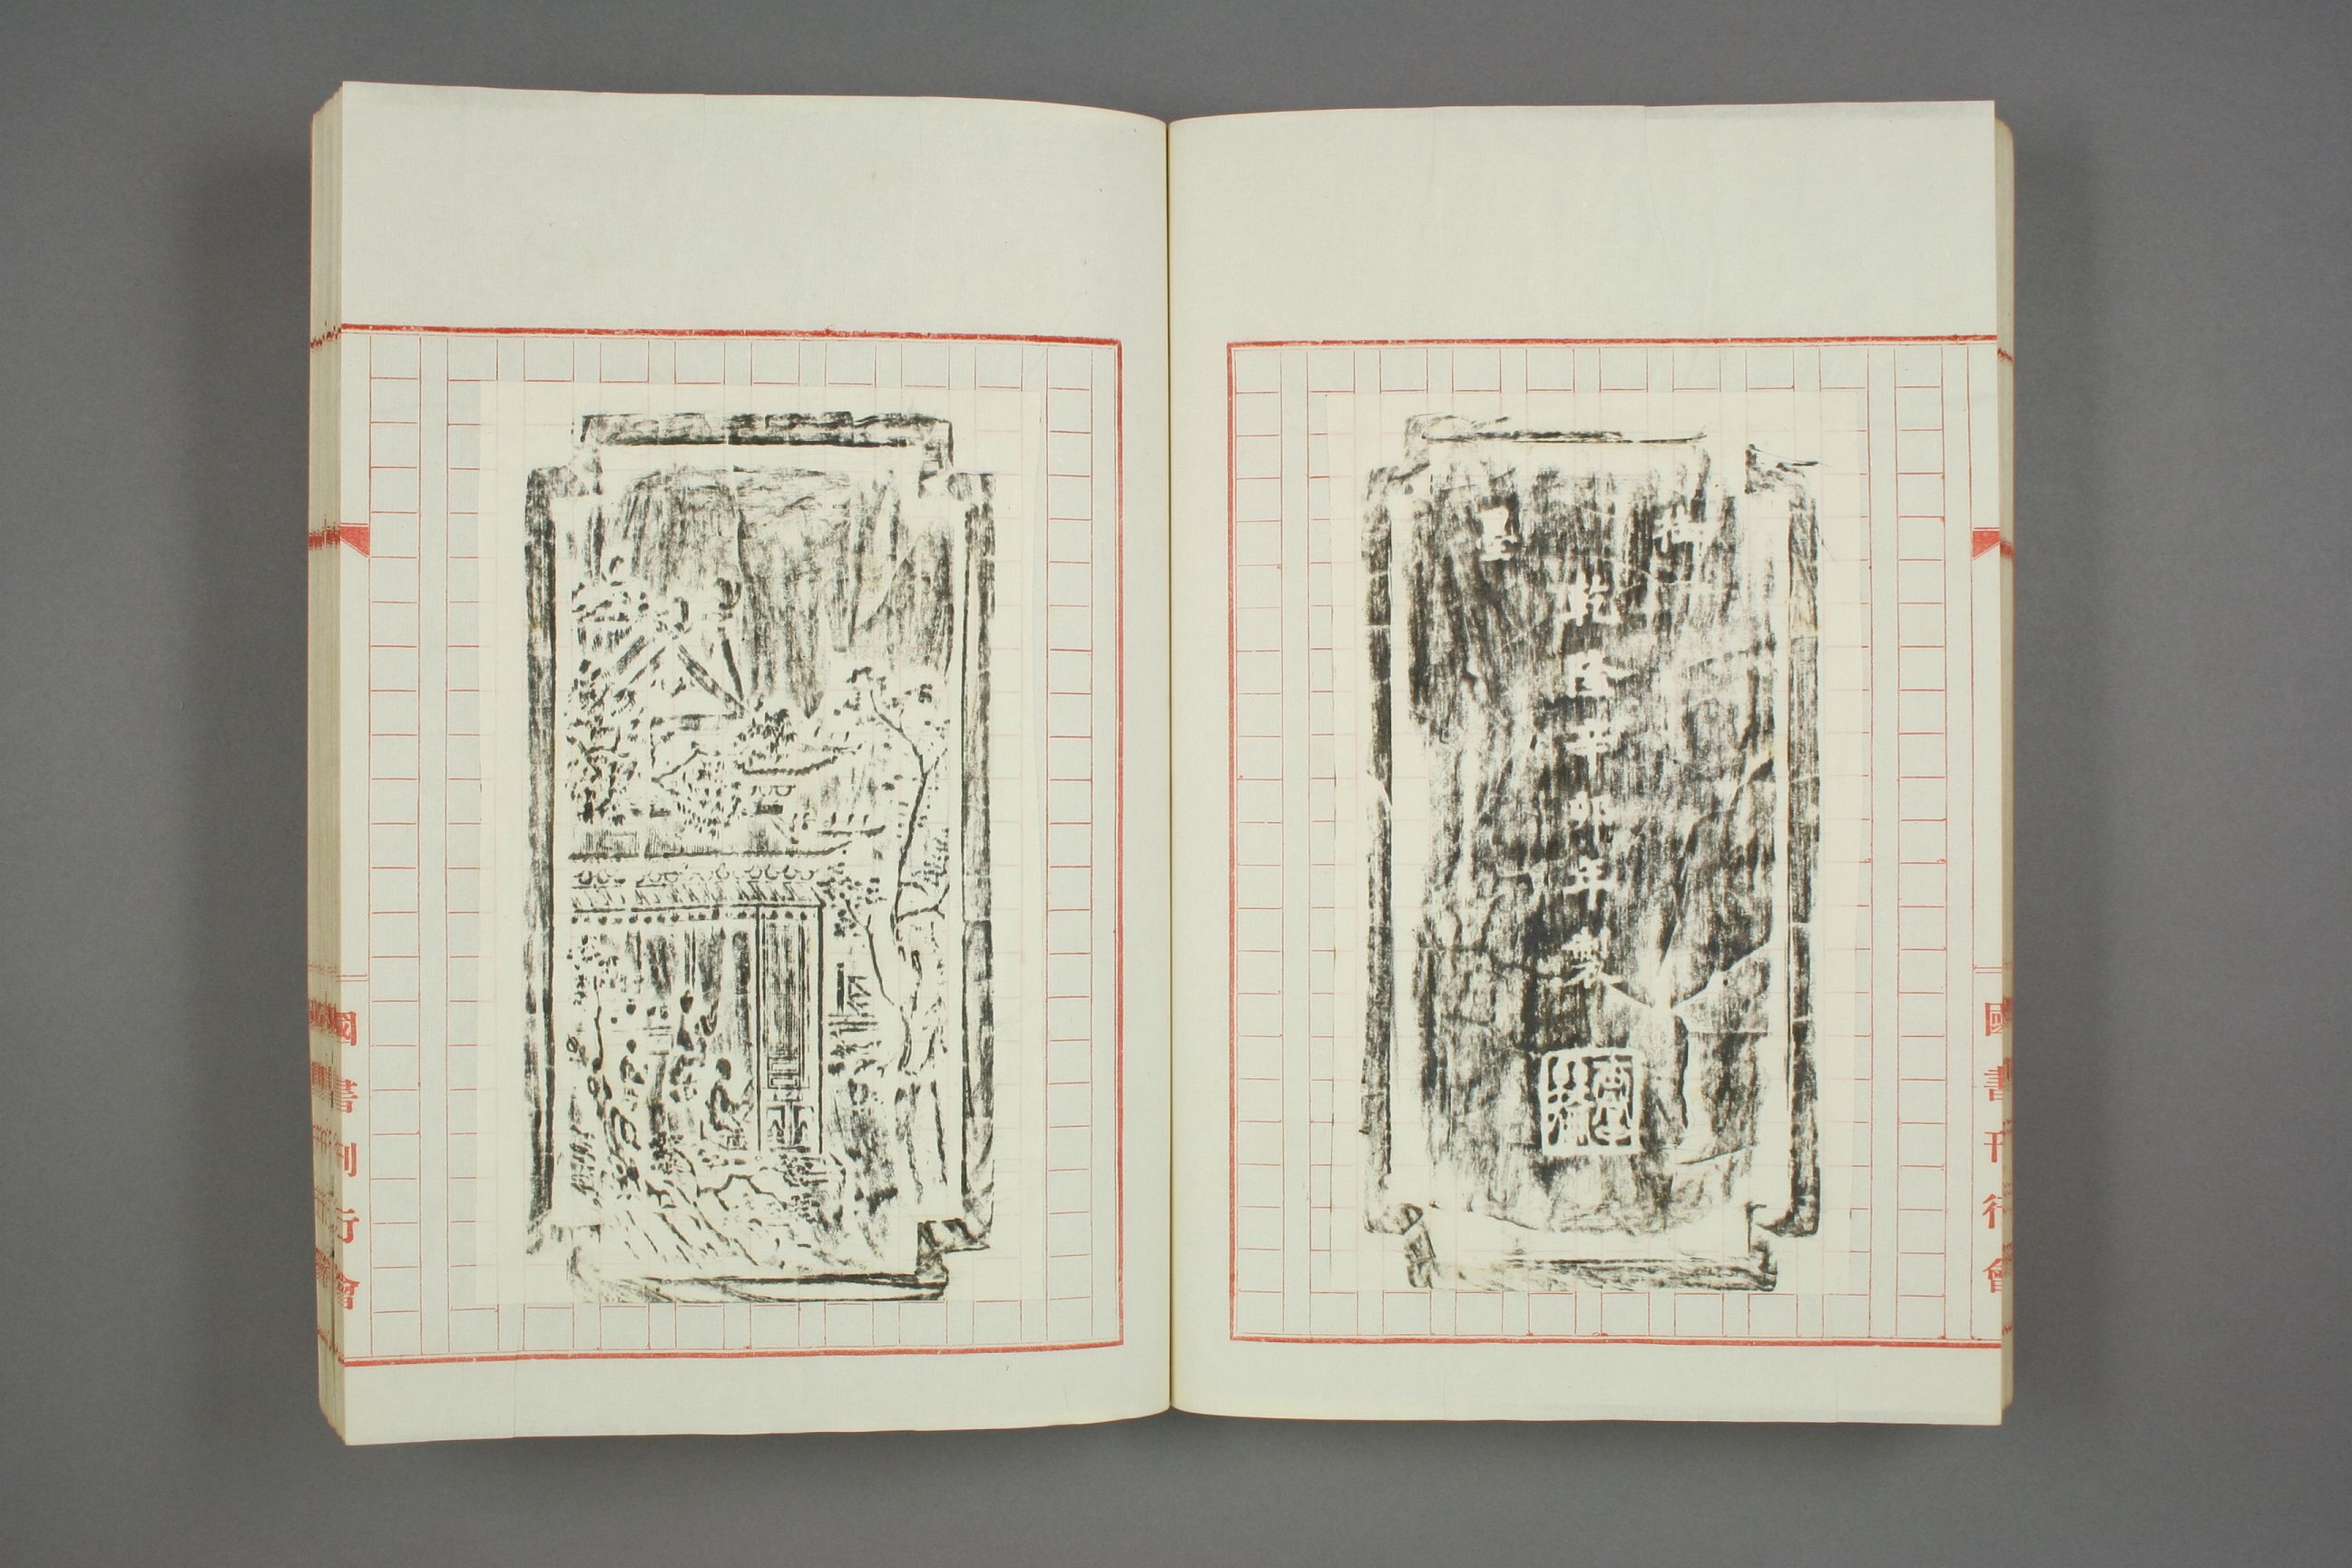 國書刊行會
御
乾隆辛卯年製
墨
國書刊行會